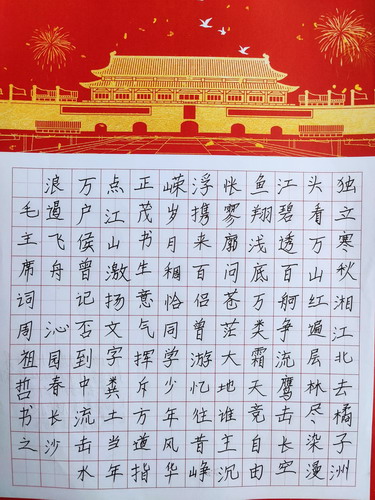 独立寒秋湘江北去橘子洲
头看万山红遍层林尽染漫
江碧透百舸争流鹰击长空
鱼翔浅底万类霜天竞自由
怅寥廓问苍茫大地谁主沉
浮携来百侣曾游忆往昔峥
嵘岁月稠恰同学少年风华
正茂书生意气挥斥方遒指
点江山激扬文字粪土当年
万户侯曾记否到中流击水
浪遏飞舟 沁园春长沙
毛主席词周祖哲书之